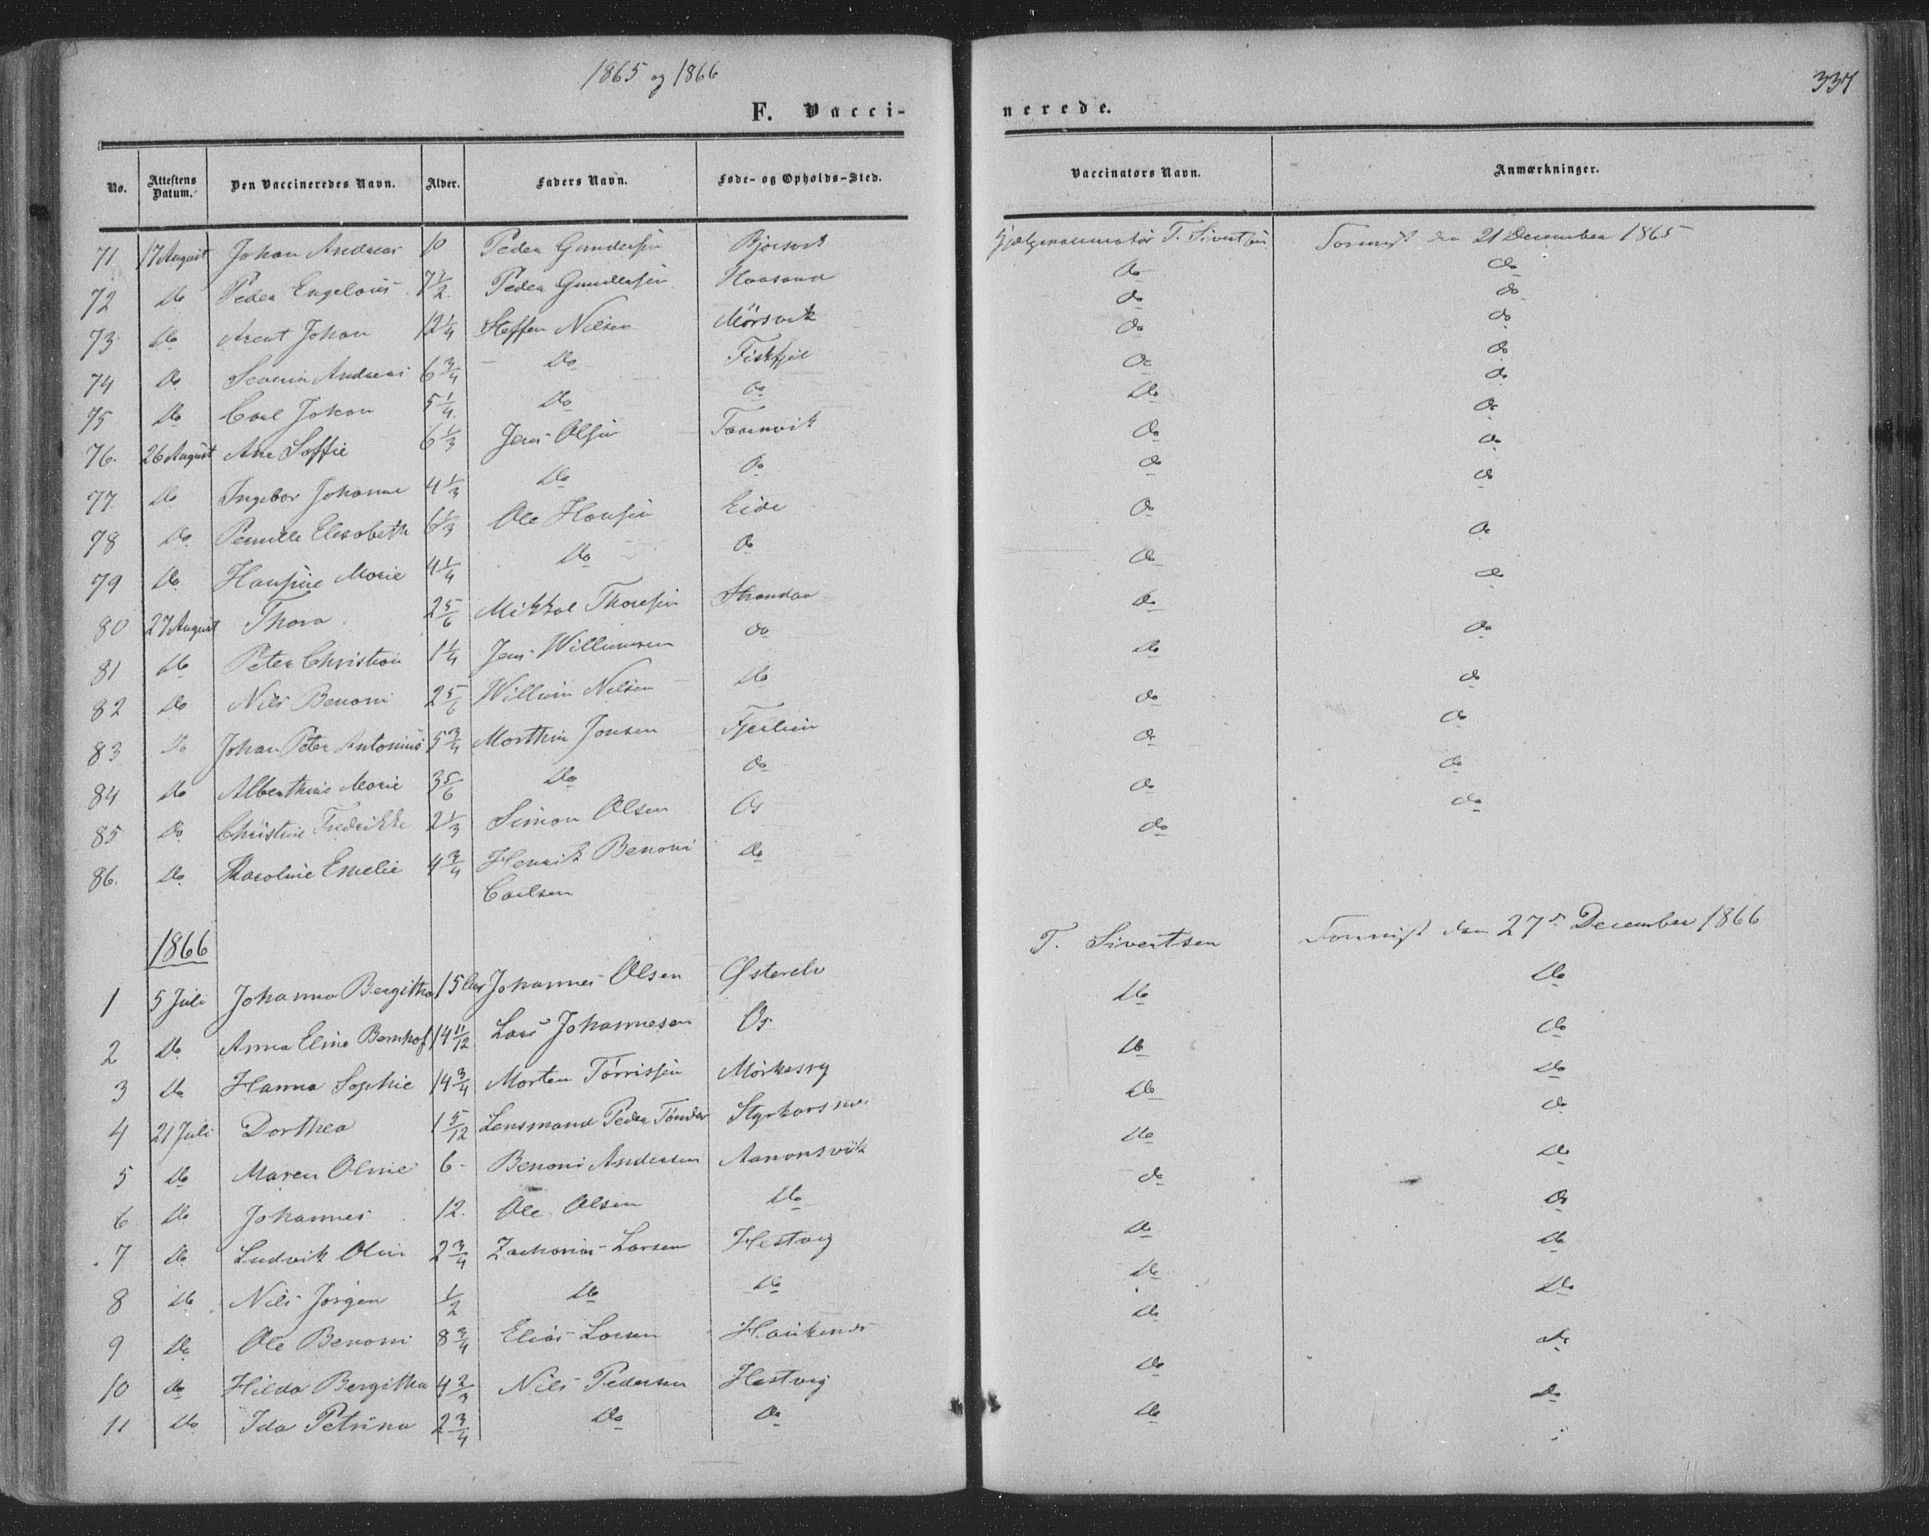 1865 og 1866
337
F. Vacci-
nerede.
No. Attestens Datum. Den Vaccineredes Navn. Alder. Faders Navn. Føde- og Opholds-Sted. Vaccinatørs Navn. Anmærkninger.
71 17 August Johan Andreas 10 Peder Gundersen T. Sivertsen den 21 December 1865
72 Do Peder 7 1/2 Peder Gundersen do do
73 Do Arent Johan 12 1/4 Steffen Nilsen Mørsvik do do
74 Do Severin Andreas 6 3/4 Do do do
75 Do Carl Johan 5 1/4 Do do Do do
76. 26 August Ane Soffie 6 1/3 Jens Olsen Taarnvik do do
77 Do Ingebor Johanne 4 1/3 Do Do do do
78 Do Pernille Elisabeth 6 1/3 Ole Hansen Eide do do
79 Do Hansine Marie 4 1/4 Do do do do
80 27 August Thora 2 5/6 Mikkal Thoresen Strandaa do do
81 Do Peter Christian 1 1/4 Jens Willumsen do Do do
82 Do Nils Benoni 2 5/6 Willum Nilsen Do do do
83 Do Johan Peter Antonius 5 3/4 Morthin Jonsen do do
84 Do Alberthine Marie 3 5/6 Do do do do
85 Do Christine Fredrikke 2 1/3 Simon Olsen Os do do
86. Do Karoline Emelie 4 3/4 Henrik Benoni Do
Carlsen
1866
1 5 Juli Johanna Bergitha 15 Johannes Olsen Østerelv T. Sivertsen den 27de December 1866
2 Do Anna Eline Bernhof 14 11/12 Lars Johannesen Os Do Do
3 Do Hanna Sophie 14 3/4 Morten Tørrissen Do do
4 21 Juli Dorthea 1 5/12 Lensmand Peder Tønder Do Do
5 Do Maren Oline 6 Benoni Andersen Aanonsvik Do do
6 Do Johannes 12. Ole Olsen Do do Do
7 Do Ludvik Olin 2 3/4 Zacharias Larsen Hestvig Do Do
8 Do Nils Jørgen 1/2 Do Do Do Do
9 Do Ole Benoni 8 3/4 Elias Larsen Haukenes Do Do
10 do Hilda Bergitha 4 2/3 Nils Pedersen Hestvig Do do
11 Do Ida Petrina 2 3/4 Do Do Do Do